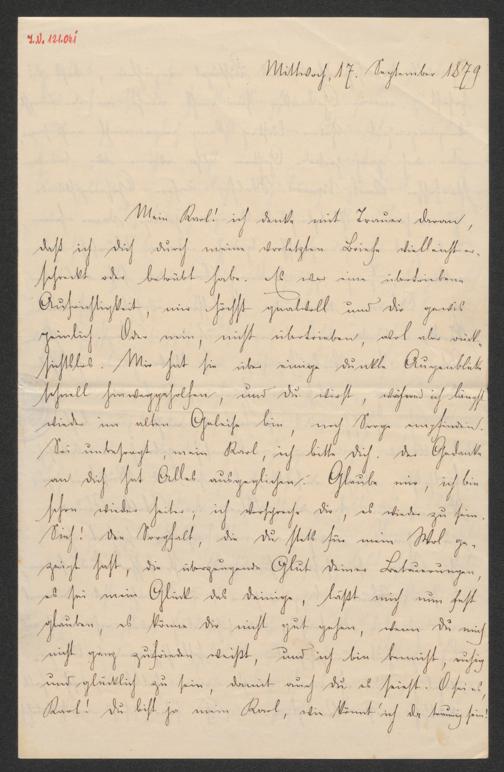 I.N. 121.041
Mittwoch, 17. September 1879
Mein Karl! ich denke mit Trauer daran,
daß ich Dich durch meine vorletzten Briefe vielleicht er-
schreckt oder betrübt habe. Es war eine übertriebene
Aufrichtigkeit, mir höchst qualvoll und Dir gewis
peinlich. Oder nein, nicht übertrieben, wol aber rück-
sichtslos. Mir hat sie über einige dunkle Augenblicke
schnell hinweggeholfen, und Du wirst, während ich längst
wieder im alten Geleise bin, noch Sorge empfinden.
Sei unbesorgt, mein Karl, ich bitte Dich. Der Gedanke
an Dich hat Alles ausgeglichen. Glaube mir, ich bin
schon wieder heiter; ich verspreche Dir, es wieder zu sein.
Sieh! Den Sorgfalt, die Du stets für mein Wol ge-
zeigt hast, die überzeugende Glut Deiner Beteuerungen,
es sei mein Glück das Deinige, läßt mich nun fest
glauben, es könne Dir nicht gut gehen, wenn Du mich
nicht ganz zufrieden weißt, und ich bin bemüht, ruhig
und glücklich zu sein, damit auch Du es seiest. O sei es,
Karl! Du bist ja mein Karl, wie könnt' ich da traurig sein!